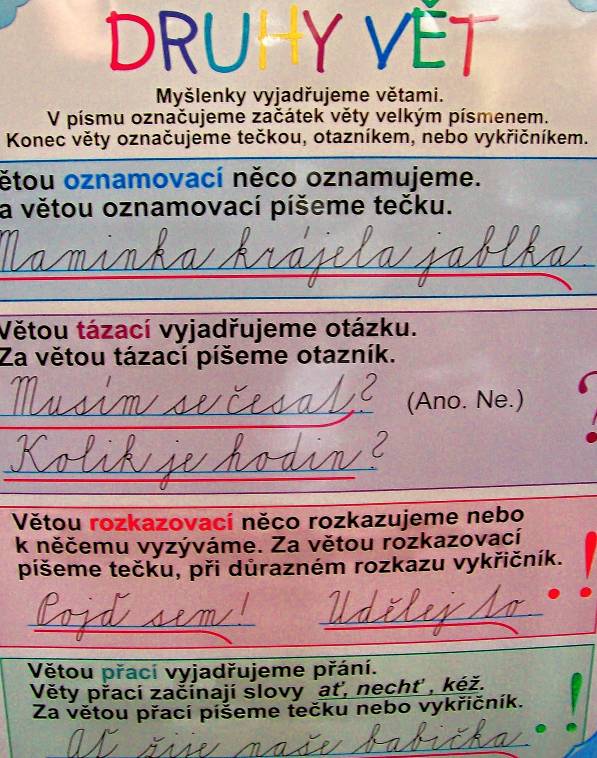 DRUHY VĚT
Myšlenky vyjadřujeme větami.
V písmu označujeme začátek věty velkým písmenem.
Konec věty označujeme tečkou, otazníkem, nebo vykřičníkem.
ětou oznamovací něco oznamujeme.
a větou oznamovací píšeme tečku.
Maminka krájela jablka
Větou tázací vyjadřujeme otázku.
Za větou tázací píšeme otazník.
Musím se česat? (Ano. Ne.) ?
Kolik je hodin?
Větou rozkazovací něco rozkazujeme nebo
k něčemu vyzýváme. Za větou rozkazovací
píšeme tečku, při důrazném rozkazu vykřičník.
Pojď sem! Udělej to. . !
Větou přací vyjadřujeme přání.
Věty přací začínají slovy ať, nechť , kéž.
Za větou přací píšeme tečku nebo vykřičník.
Ať žije naše babička . !